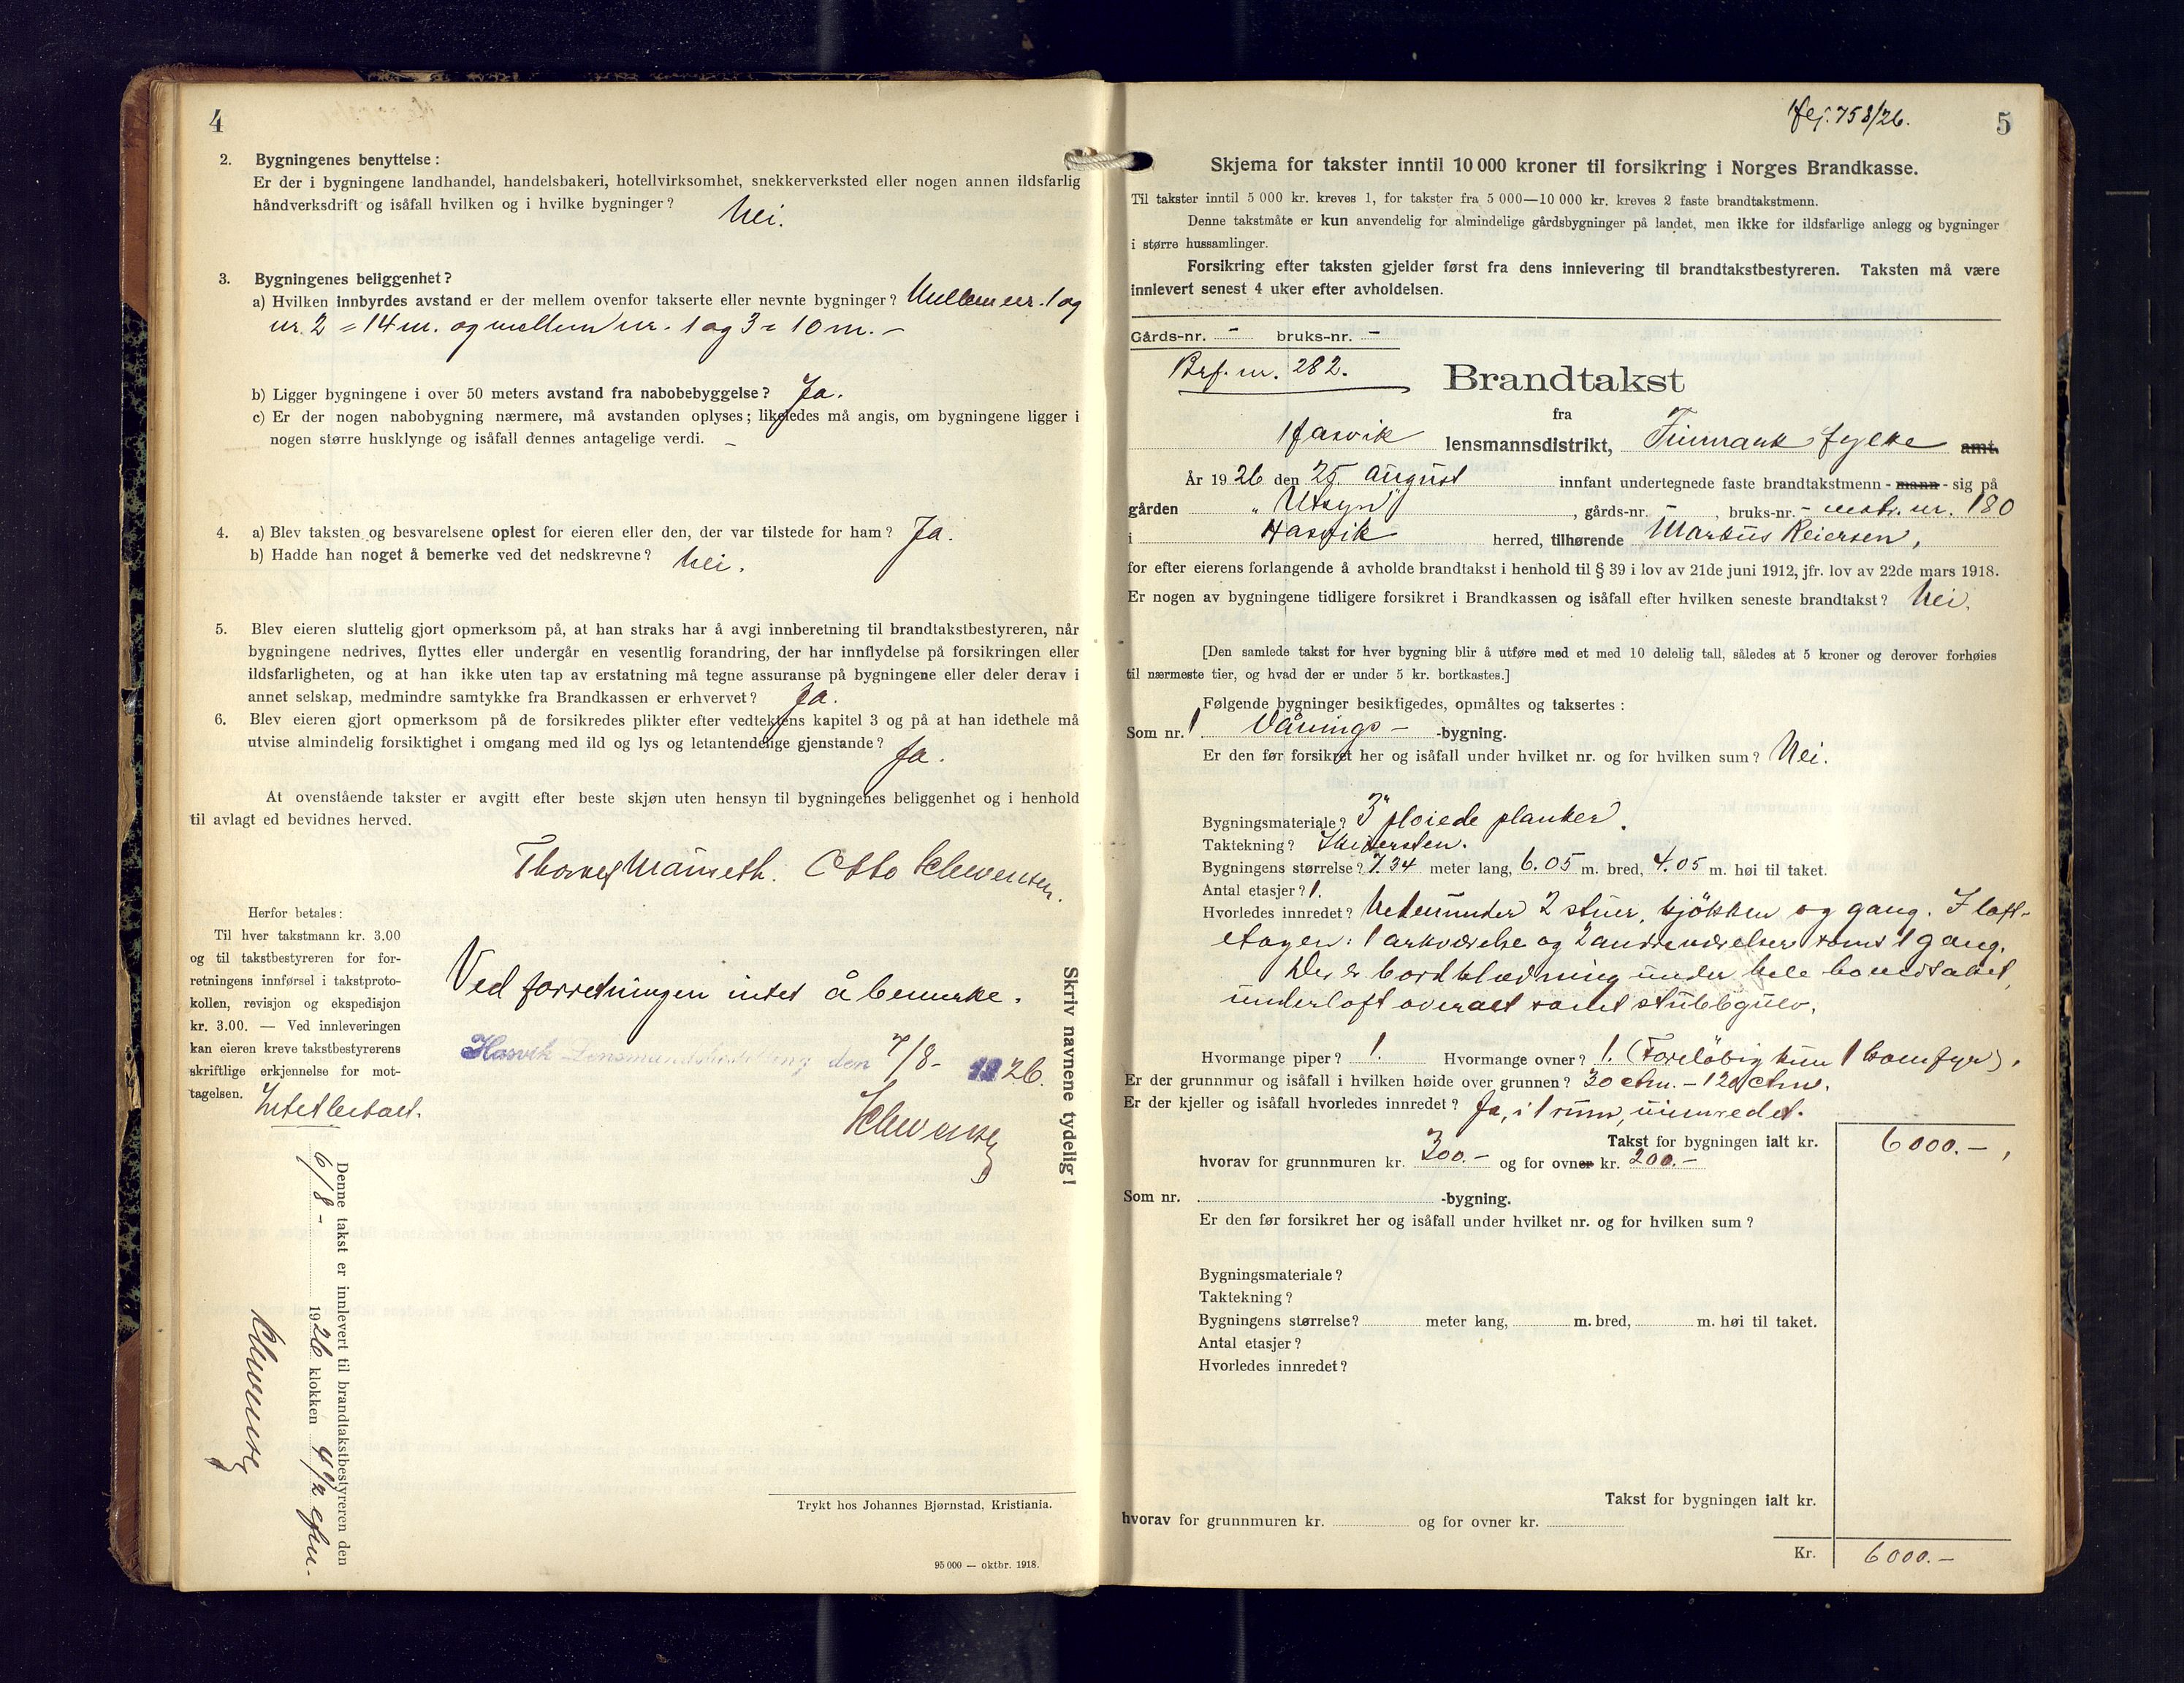 4
2. Bygningenes benyttelse:
Er der i bygningene landhandel, handelsbakeri, hotellvirksomhet, snekkerverksted eller nogen annen ildsfarlig
håndverksdrift og isåfall hvilken og i hvilke bygninger? Nei.
3. Bygningenes beliggenhet?
a) Hvilken innbyrdes avstand er der mellem ovenfor takserte eller nevnte bygninger? Mellem nr. 1 og
nr. 2 = 14 m. og mellem nr. 1 og 3 = 10 m. –
b) Ligger bygningene i over 50 meters avstand fra nabobebyggelse? Ja.
c) Er der nogen nabobygning nærmere, må avstanden oplyses; likeledes må angis, om bygningene ligger i
nogen større husklynge og isåfall dennes antagelige verdi. –
4. a) Blev taksten og besvarelsene oplest for eieren eller den, der var tilstede for ham? Ja.
b) Hadde han noget å bemerke ved det nedskrevne? Nei.
5. Blev eieren sluttelig gjort opmerksom på, at han straks har å avgi innberetning til brandtakstbestyreren, når
bygningene nedrives, flyttes eller undergår en vesentlig forandring, der har innflydelse på forsikringen eller
ildsfarligheten, og at han ikke uten tap av erstatning må tegne assuranse på bygningene eller deler derav i
annet selskap, medmindre samtykke fra Brandkassen er erhvervet? Ja.
6. Blev eieren gjort opmerksom på de forsikredes plikter efter vedtektens kapitel 3 og på at han idethele må
utvise almindelig forsiktighet i omgang med ild og lys og letantendelige gjenstande? Ja.
At ovenstående takster er avgitt efter beste skjøn uten hensyn til bygningenes beliggenhet og i henhold
til avlagt ed bevidnes herved.
Otto Klevensen.
Herfor betales:
Til hver takstmann kr. 3.00
og til takstbestyreren for for-
retningens innførsel i takstproto-
kollen, revisjon og ekspedisjon
kr. 3.00. — Ved innleveringen
kan eieren kreve takstbestyrerens
skriftlige erkjennelse for mot-
tagelsen. Intet betalt.
Ved forretningen intet å bemerke.
Hasvik Lensmannsbestilling den 7/8- 1926.
Klevensen
Skriv navnene tydelig!
Denne takst er innlevert til brandtakstbestyreren den
6/8 - 1926 klokken 4 1/2 efm.
Klevensen
Trykt hos Johannes Bjørnstad, Kristiania.
95 000 — oktbr. 1918.
Hfj. 758/26.
5
Skjema for takster inntil 10 000 kroner til forsikring i Norges Brandkasse.
Til takster inntil 5 000 kr. kreves 1, for takster fra 5 000—10 000 kr. kreves 2 faste brandtakstmenn.
Denne takstmåte er kun anvendelig for almindelige gårdsbygninger på landet, men ikke for ildsfarlige anlegg og bygninger
i større hussamlinger.
Forsikring efter taksten gjelder først fra dens innlevering til brandtakstbestyreren. Taksten må være
innlevert senest 4 uker efter avholdelsen.
Gårds-nr. – bruks-nr. –
Brf. nr. 282.
Brandtakst
fra
Hasvik lensmannsdistrikt, Finmark fylke amt.
År 1926 den 25. august innfant undertegnede faste brandtakstmenn - mann - sig på
gården „Utsyn", gårds-nr. –, bruks-nr. – matr. nr. 180
i Hasvik herred, tilhørende Markus Reiersen,
for efter eierens forlangende å avholde brandtakst i henhold til § 39 i lov av 21de juni 1912, jfr. lov av 22de mars 1918.
Er nogen av bygningene tidligere forsikret i Brandkassen og isåfall efter hvilken seneste brandtakst? Nei.
[Den samlede takst for hver bygning blir å utføre med et med 10 delelig tall, således at 5 kroner og derover forhøies
til nærmeste tier, og hvad der er under 5 kr. bortkastes.]
Følgende bygninger besiktigedes, opmåltes og taksertes:
Som nr. 1 Vånings- -bygning.
Er den før forsikret her og isåfall under hvilket nr. og for hvilken sum? Nei.
Bygningsmateriale? 3" pløiede planker.
Taktekning? Skifersten.
Bygningens størrelse? 7.34 meter lang, 6.05 m. bred, 4.05 m. høi til taket.
Antal etasjer? 1.
Hvorledes innredet? Nedenunder 2 stuer, kjøkken og gang. I loft-
etagen: 1 arkværelse og 2 andre værelser samt 1 gang.
Der er bordklædning under hele hovedtaket,
underloft overalt samt stubbgulv.
Hvormange piper? 1. Hvormange ovner? 1. (Foreløbig kun 1 komfyr).
Er der grunnmur og isåfall i hvilken høide over grunnen? 30 ctm. – 120 ctm.
Er der kjeller og isåfall hvorledes innredet? Ja, i 1 rum, uinnredet.
Takst for bygningen ialt kr. 6000.–,
hvorav for grunnmuren kr. 300.– og for ovner kr. 200.–
Som nr. -bygning.
Er den før forsikret her og isåfall under hvilket nr. og for hvilken sum?
Bygningsmateriale?
Taktekning?
Bygningens størrelse? meter lang, m. bred, m. høi til taket.
Antal etasjer?
Hvorledes innredet?
Takst for bygningen ialt kr.
hvorav for grunnmuren kr. og for ovner kr.
Kr. 6000.–